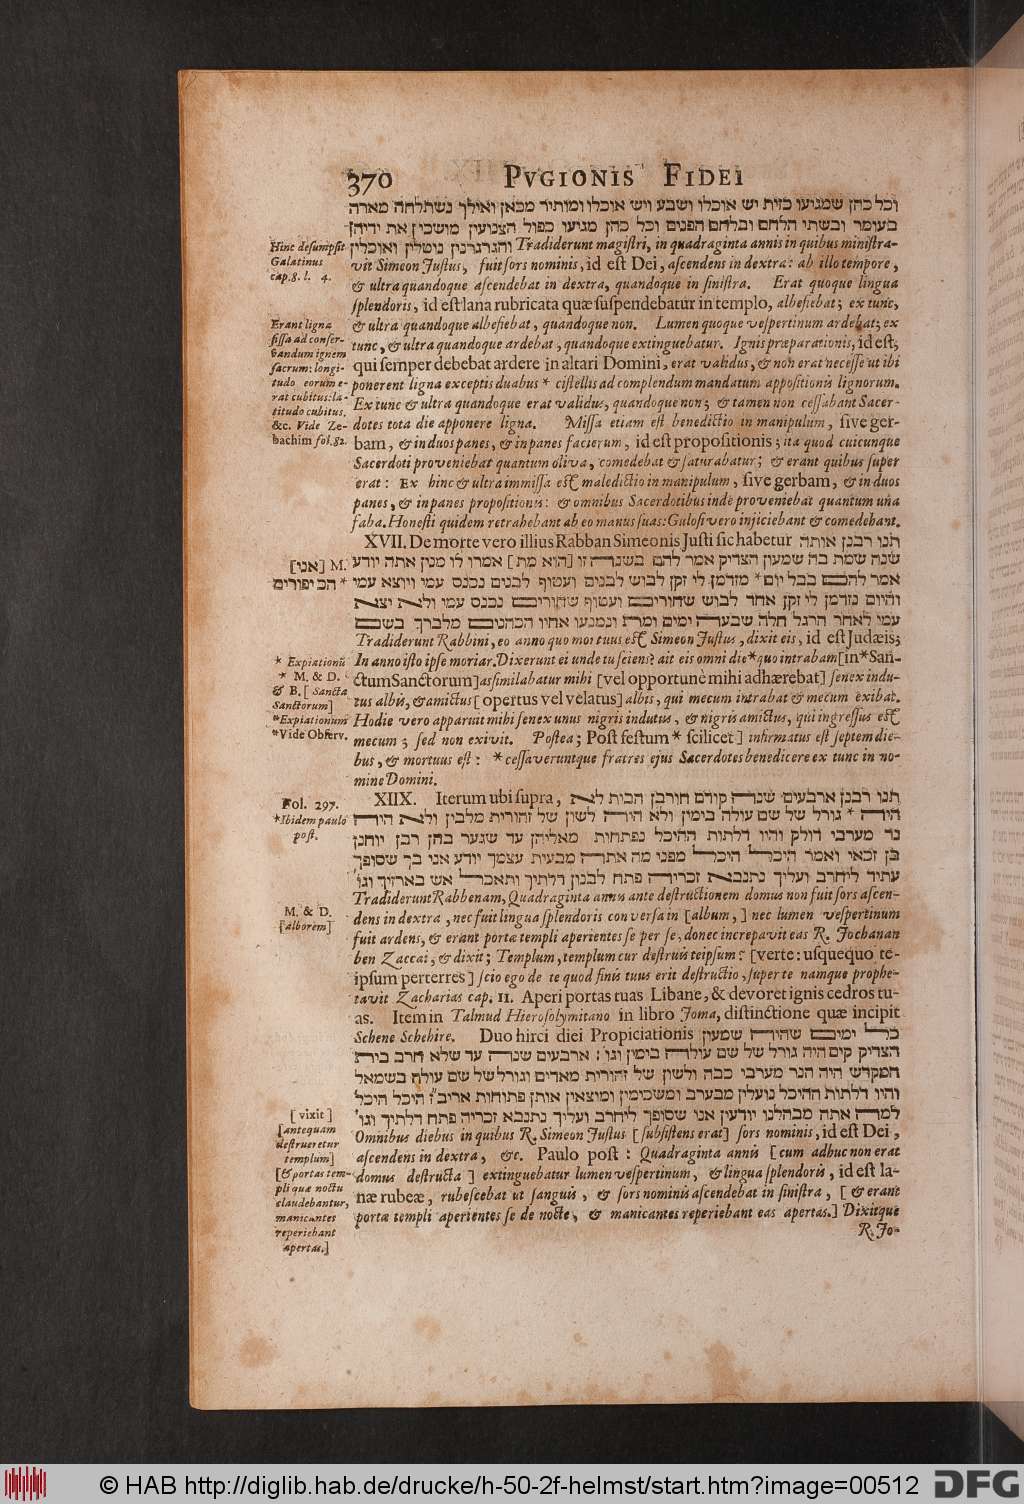 370 PVGIONIS FIDEI
וכל כהן שמגיעו כזית יש אוכלו ושבע ויש אוכלו ומותיר מכאן ואילך נשתלחה מארה
בעומר ובשתי הלחם ובלחם הפנים וכל כהן מגיעו כפול הצנועין מושכין את ידיהן
והגרגרנין נוטלין ואוכלין Tradiderunt magistri, in quadraginta annis in quibus ministra-
vit Simeon Justus, fuit sors nominis, id est Dei, ascendens in dextra: ab illo tempore,
& ultra quandoque ascendebat in dextra, quandoque in sinistra. Erat quoque lingua
splendoris, id est lana rubricata quæ suspendebatur in templo, albefiebat; ex tunc,
& ultra quandoque albefiebat, quandoque non. Lumen quoque vespertinum ardebat; ex
tunc, & ultra quandoque ardebat, quandoque extinguebatur. Ignis præparationis, id est,
qui semper debebat ardere in altari Domini, erat validus, & non erat necesse ut ibi
ponerent ligna exceptis duabus * cistellis ad complendum mandatum appositionis lignorum.
Ex tunc & ultra quandoque erat validus, quandoque non; & tamen non cessabant Sacer-
dotes tota die apponere ligna. Missa etiam est benedictio in manipulum, sive ger-
bam, & in duos panes, & in panes facierum, id est propositionis; ita quod cuicunque
Sacerdoti proveniebat quantum oliva, comedebat & saturabatur; & erant quibus super
erat: Ex hinc & ultra immissa est maledictio in manipulum, sive gerbam, & in duos
panes, & in panes propositionis: & omnibus Sacerdotibus inde proveniebat quantum una
faba. Honesti quidem retrahebant ab eo manus suas: Gulosi vero injiciebant & comedebant.
Hinc desumpsit
Galatinus
cap. 8. l. 4.
Erant ligna
fissa ad conser-
vandum ignem
sacrum: longi-
tudo eorum e-
rat cubitus: la-
titudo cubitus.
&c. Vide Ze-
bachim fol. 82.
XVII. De morte vero illius Rabban Simeonis Justi sic habetur תנו רבנן אותה
שנה שמת בה שמעון הצדיק אמר להם בשנה זו [הוא מת] אמרו לו מנין אתה יודע
אמר להם בכל יום * מזדמן לי זקן לבוש לבנים ועטוף לבנים נכנס עמי ויוצא עמי
והיום נזדמן לי זקן אחד לבוש שחורים ועטוף שחורים נכנס עמי ולא יצא
עמי לאחר הרגל חלה שבעה ימים ומת ונמנעו אחיו הכהנים מלברך בשם
Tradiderunt Rabbini, eo anno quo mortuus est Simeon Justus, dixit eis, id est Judæis;
In anno isto ipse moriar. Dixerunt ei unde tu sciens? ait eis omni die * quo intrabam [in * San-
ctum Sanctorum] assimilabatur mihi [vel opportune mihi adhærebat] senex indu-
tus albis, & amictus [opertus vel velatus] albis, qui mecum intrabat & mecum exibat.
Hodie vero apparuit mihi senex unus nigris indutus, & nigris amictus, qui ingressus est
mecum; sed non exivit. Postea; Post festum * scilicet] infirmatus est septem die-
bus, & mortuus est: * cessaveruntque fratres ejus Sacerdotes benedicere ex tunc in no-
mine Domini.
[אני] M.
* הכיפורים
* Expiationis
* M. & D.
& B. [Sancta
Sanctorum]
* Expiationum
* Vide Observ.
XIIX. Iterum ubi supra, תנו רבנן ארבעים שנה קודם חורבן הבית לא
היה * גורל של שם עולה בימין ולא היה לשון של זהורית מלבין ולא היה
נר מערבי דולק והיו דלתות ההיכל נפתחות מאליהן עד שגער בהן רבן יוחנן
בן זכאי ואמר היכל היכל מפני מה אתה מבעית עצמך יודע אני בך שסופך
עתיד ליחרב ועליך נתנבא זכריה פתח לבנון דלתיך ותאכל אש בארזיך וגו'
Tradiderunt Rabbenam, Quadraginta annis ante destructionem domus non fuit sors ascen-
dens in dextra, nec fuit lingua splendoris conversa in [album,] nec lumen vespertinum
fuit ardens, & erant portæ templi aperientes se per se, donec increpavit eas R. Jochanan
ben Zaccai, & dixit; Templum, templum cur destruis teipsum? [verte: usquequo te-
ipsum perterres] scio ego de te quod finis tuus erit destructio, super te namque prophe-
tavit Zacharias cap. 11. Aperi portas tuas Libane, & devoret ignis cedros tu-
as. Item in Talmud Hierosolymitano in libro Joma, distinctione quæ incipit
Schene Schehire. Duo hirci diei Propiciationis כל ימים שהיה שמעון
הצדיק קים היה גורל של שם עולה בימין וגו': ארבעים שנה עד שלא חרב בית
המקדש היה הנר מערבי כבה ולשון של זהורית מאדים וגורל של שם עולה בשמאל
והיו דלתות ההיכל נועלין מבערב ומשכימין ומוצאין אותן פתוחות אריב"ז היכל היכל
למה אתה מבהלנו יודעין אנו שסופך ליחרב ועליך נתנבא זכריה פתח דלתיך וגו'
Omnibus diebus in quibus R. Simeon Justus [subsistens erat] sors nominis, id est Dei,
ascendens in dextra, &c. Paulo post: Quadraginta annis [cum adhuc non erat
domus destructa] extinguebatur lumen vespertinum, & lingua splendoris, id est la-
næ rubeæ, rubescebat ut sanguis, & sors nominis ascendebat in sinistra, [& erant
portæ templi aperientes se de nocte, & manicantes reperiebant eas apertas.] Dixitque
R. Jo-
Fol. 297.
* Ibidem paulo
post.
M. & D.
[alborem]
[vixit]
[antequam
destrueretur
templum]
[& portas tem-
pli quæ noctu
claudebantur,
manicantes
reperiebant
apertas.]
© HAB http://diglib.hab.de/drucke/h-50-2f-helmst/start.htm?image=00512 DFG